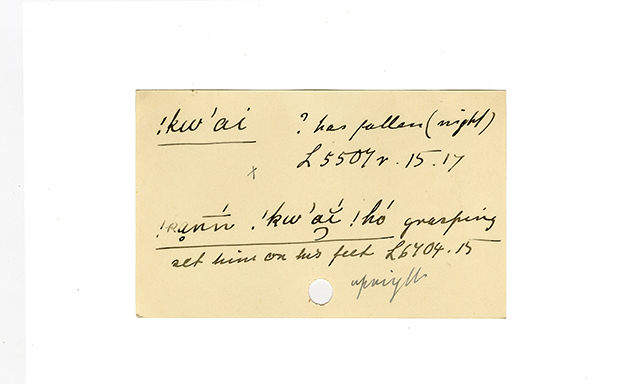 !kw'ai ? has fallen (night)
L 5507v. 15. 17
x
!kw'ạǐ !hó grasping
set him on his feet L 6704. 15
upright